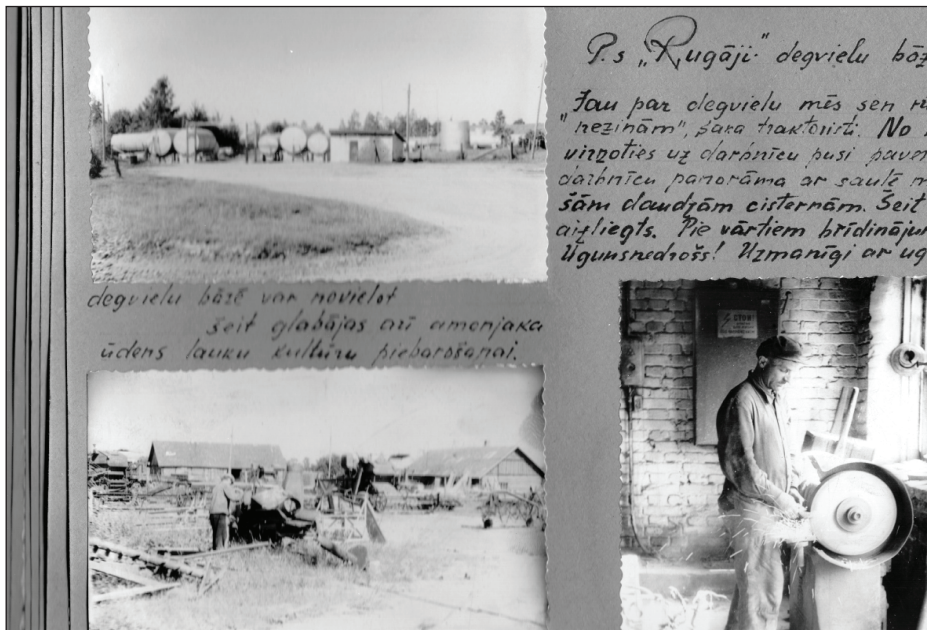 P.s „Rugāji" degvielu bāz
Jau par degvielu mēs sen
"nezinām", saka traktoristi. No
virzoties uz darbnīcu pusi paver
darbnīcu panorāma ar saulē
šām daudzām cisternām. Šeit
aizliegts. Pie vārtiem brīdinājum
Ugunsnedrošs! Uzmanīgi ar ug
degvielu bāzē var novietot
šeit glabājas arī amonjaka
ūdens lauku kultūru piebarošanai.
STOP!